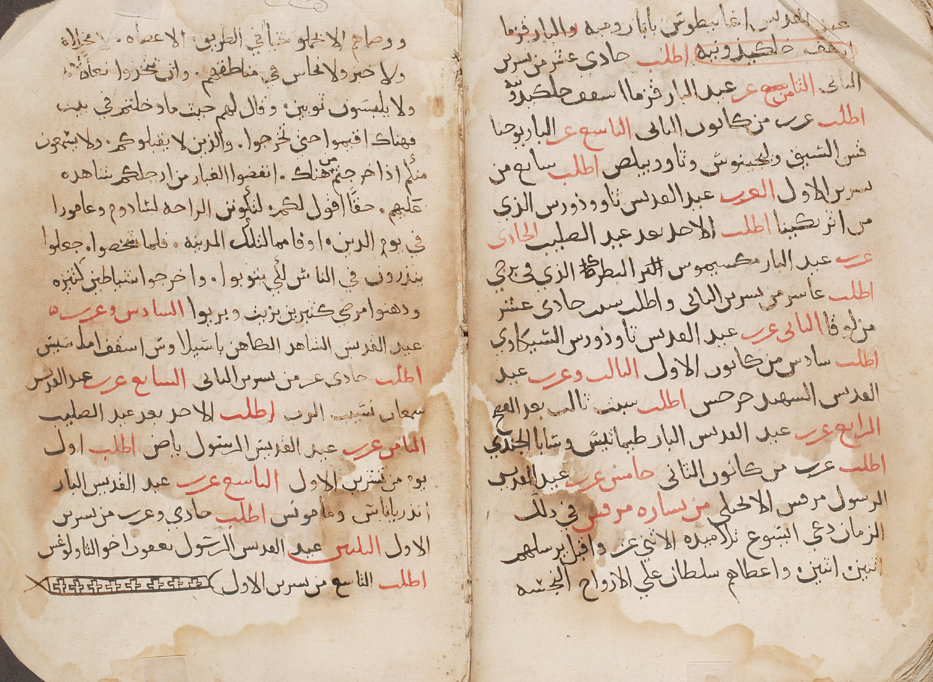 عيد القديس اغابيطوس بابا روميه والبار قزما
اسقف خلكيدونيه اطلب حادي عشر من تشرين
الثاني الثامن عشر عيد البار قزما اسقف خلكيدونيه
اطلب عرين من كانون الثاني التاسع عشر البار يوحنا
قس الشيق اطلب سابع من
تشرين الاول العشرين عيد القديس تاوودورس الذي
من اطلب الاحد بعد عيد الصليب الحادي
عرين عيد البار مكسيموس الذي في
اطلب عاشر من تشرين الثاني واطلب سبت حادي عشر
من لوقا الثاني عرين عيد القديس تاودورس الشيكاوي
اطلب سادس من كانون الاول الثالث وعرين عيد
القديس الشهيد جرجس اطلب سبت ثالث بعد الفصح
الرابع عرين عيد القديس البار وسابا الجندي
اطلب عرين من كانون الثاني خامس عرين عيد القديس
الرسول مرقس الانجيلي من بشاره مرقس في ذلك
الزمان دعى ايسوع تلاميذه الاثني عشر واقبل يرسلهم
اثنين اثنين واعطاهم سلطان على الارواح النجسه
ووصاهم الا يحملوا شيا في الطريق الا عصاه
ولا خبز ولا نحاس في مناطقهم وان
ولا يلبسون ثوبين وقال لهم حيث ما دخلتم في بيت
فهناك اقيموا حتى تخرجوا والذين لا يقبلوكم ولا يسمعون
منكم اذا خرجتم من هناك انفضوا الغبار من ارجلكم شاهده
عليهم حقا اقول لكم لتكونن الراحه لسادوم وعامورا
في يوم الدين اوفا مما لتلك المدينه فلما شخصوا جعلوا
ينذرون في الناس لكي يتوبوا واخرجوا شياطين كثيره
ودهنوا مرضى كثيرين بزيت وبريوا السادس وعرين
عيد القديس الشاهد الكاهن باسيلاوس اسقف اماسيس
اطلب حادي عر من تشرين الثاني السابع عرين عيد القديس
سمعان نسيب الرب اطلب الاحد بعد عيد الصليب
الثامن عرين عيد القديس الرسول ياصن اطلب اول
يوم من تشرين الاول التاسع عرين عيد القديس البار
اطلب حادي وعرين من تشرين
الاول الثلثين عيد القديس الرسول يعقوب اخو التاولوغس
اطلب التاسع من تشرين الاول